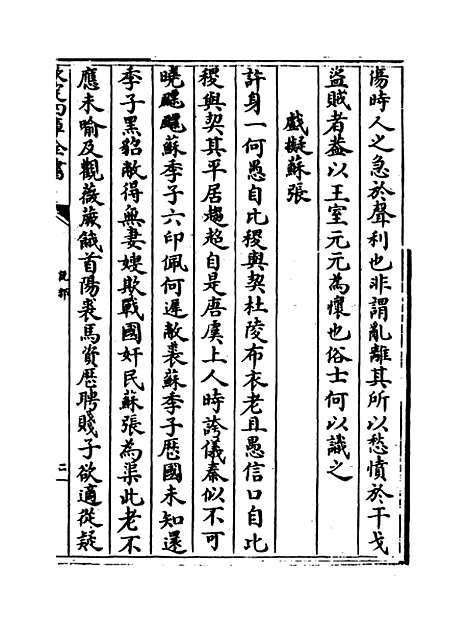 傷時人之急於聲利也非謂亂離其所以愁憤於干戈
盜賊者葢以王室元元為懷也俗士何以識之
戲擬蘇張
許身一何愚自比稷與契杜陵布衣老且愚信口自比
稷與契其平居趨趄自是唐虞上人時誇儀秦似不可
曉飀飀蘇季子六印佩何遲敝裘蘇季子歴國未知還
季子黑貂敝得無妻嫂欺戰國奸民蘇張為渠此老不
應未喻及觀薇蕨餓首陽裘馬資歴聘賤子欲適從疑
說郛